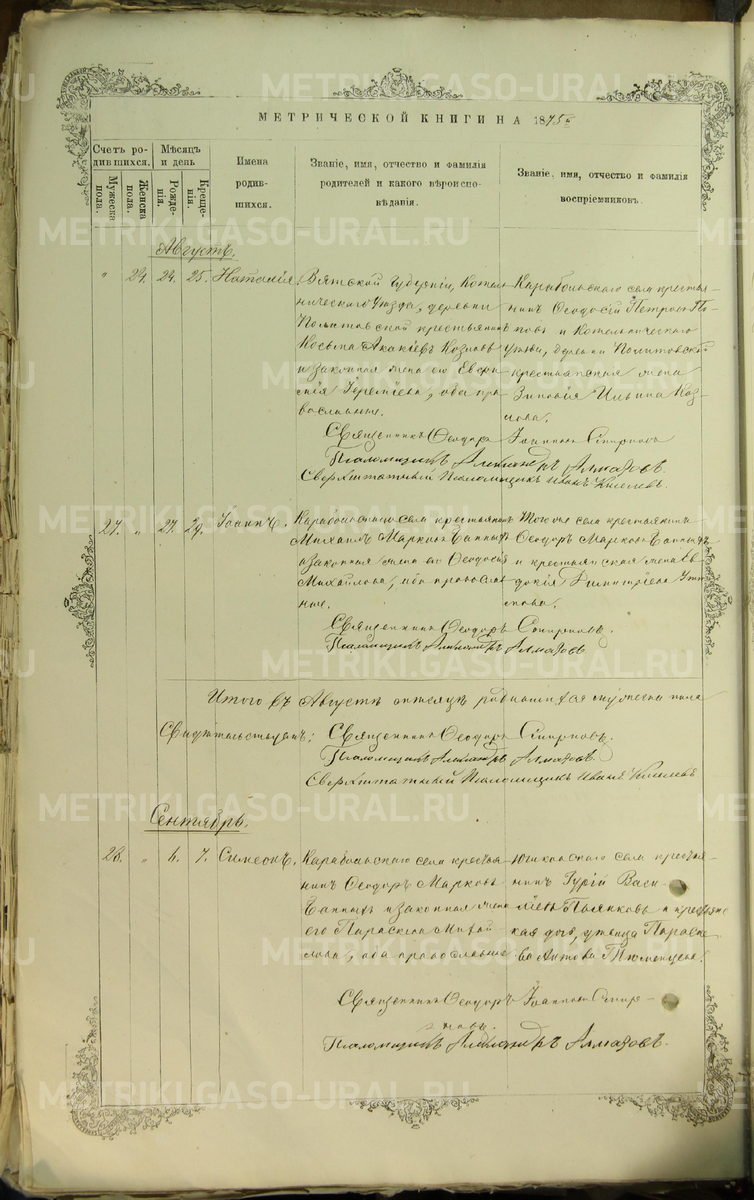 МЕТРИЧЕСКОЙ КНИГИ НА 1875 г
Счетъ ро-
дившихся.
Мѣсяцъ
и день
Мужеска
пола.
Женска
пола.
Рожде-
нія.
Креще-
нія.
Имена
родив-
шихся.
Званіе, имя, отчество и фамилія
родителей и какого вѣроиспо-
вѣданія.
Званіе, имя, отчество и фамилія
воспріемниковъ.
Августъ.
" 24. 24. 25. Наталія
Вятской Губерніи, Котель
ническаго Уѣзда, деревни
крестьянинъ
Косьма Акакіевъ Козловъ
и законная жена его Евфро
Іереміева, оба пра
вославные.
Карабольскаго села крестья-
нинъ Ѳеодосій Петровъ По-
повъ и Котельническаго
Уѣзда, деревни
крестьянская жена
Зиновія Ильина Коз-
лова.
Священникъ Ѳеодоръ Іоанновъ Смирновъ
Псаломщикъ Александръ Алмазовъ.
Сверхштатный Псаломщикъ Иванъ Киселевъ.
27. " 27. 29. Іоаннъ.
Карабольскаго села крестьянинъ
Михаилъ Марковъ Банныхъ
и законная жена его Ѳеодосія
Михайлова, оба православ
ные.
Того же села крестьянинъ
Ѳеодоръ Марковъ Банныхъ
и крестьянская жена Ев
докія Димитріева
Священникъ Ѳеодоръ Смирновъ.
Псаломщикъ Александръ Алмазовъ
Итого въ Августѣ мѣсяцѣ родившихся мужеска пола
Свидѣтельствуемъ: Священникъ Ѳеодоръ Смирновъ.
Псаломщикъ Александръ Алмазовъ.
Сверхштатный Псаломщикъ Иванъ Киселевъ
Сентябрь.
28. " 6. 7. Симеонъ.
Карабольскаго села крестья
нинъ Ѳеодоръ Марковъ
Банныхъ и законная жена
его Параскева Михай
лова, оба православные
Югоконскаго села крестья-
нинъ Гурій Васи-
ліевъ Поляковъ и крестьянс
кая дочь, дѣвица Параске
ва Антова Тюменцева.
Священникъ Ѳеодоръ Іоанновъ Смир-
новъ.
Псаломщикъ Александръ Алмазовъ.
METRIKI.GASO-URAL.RU